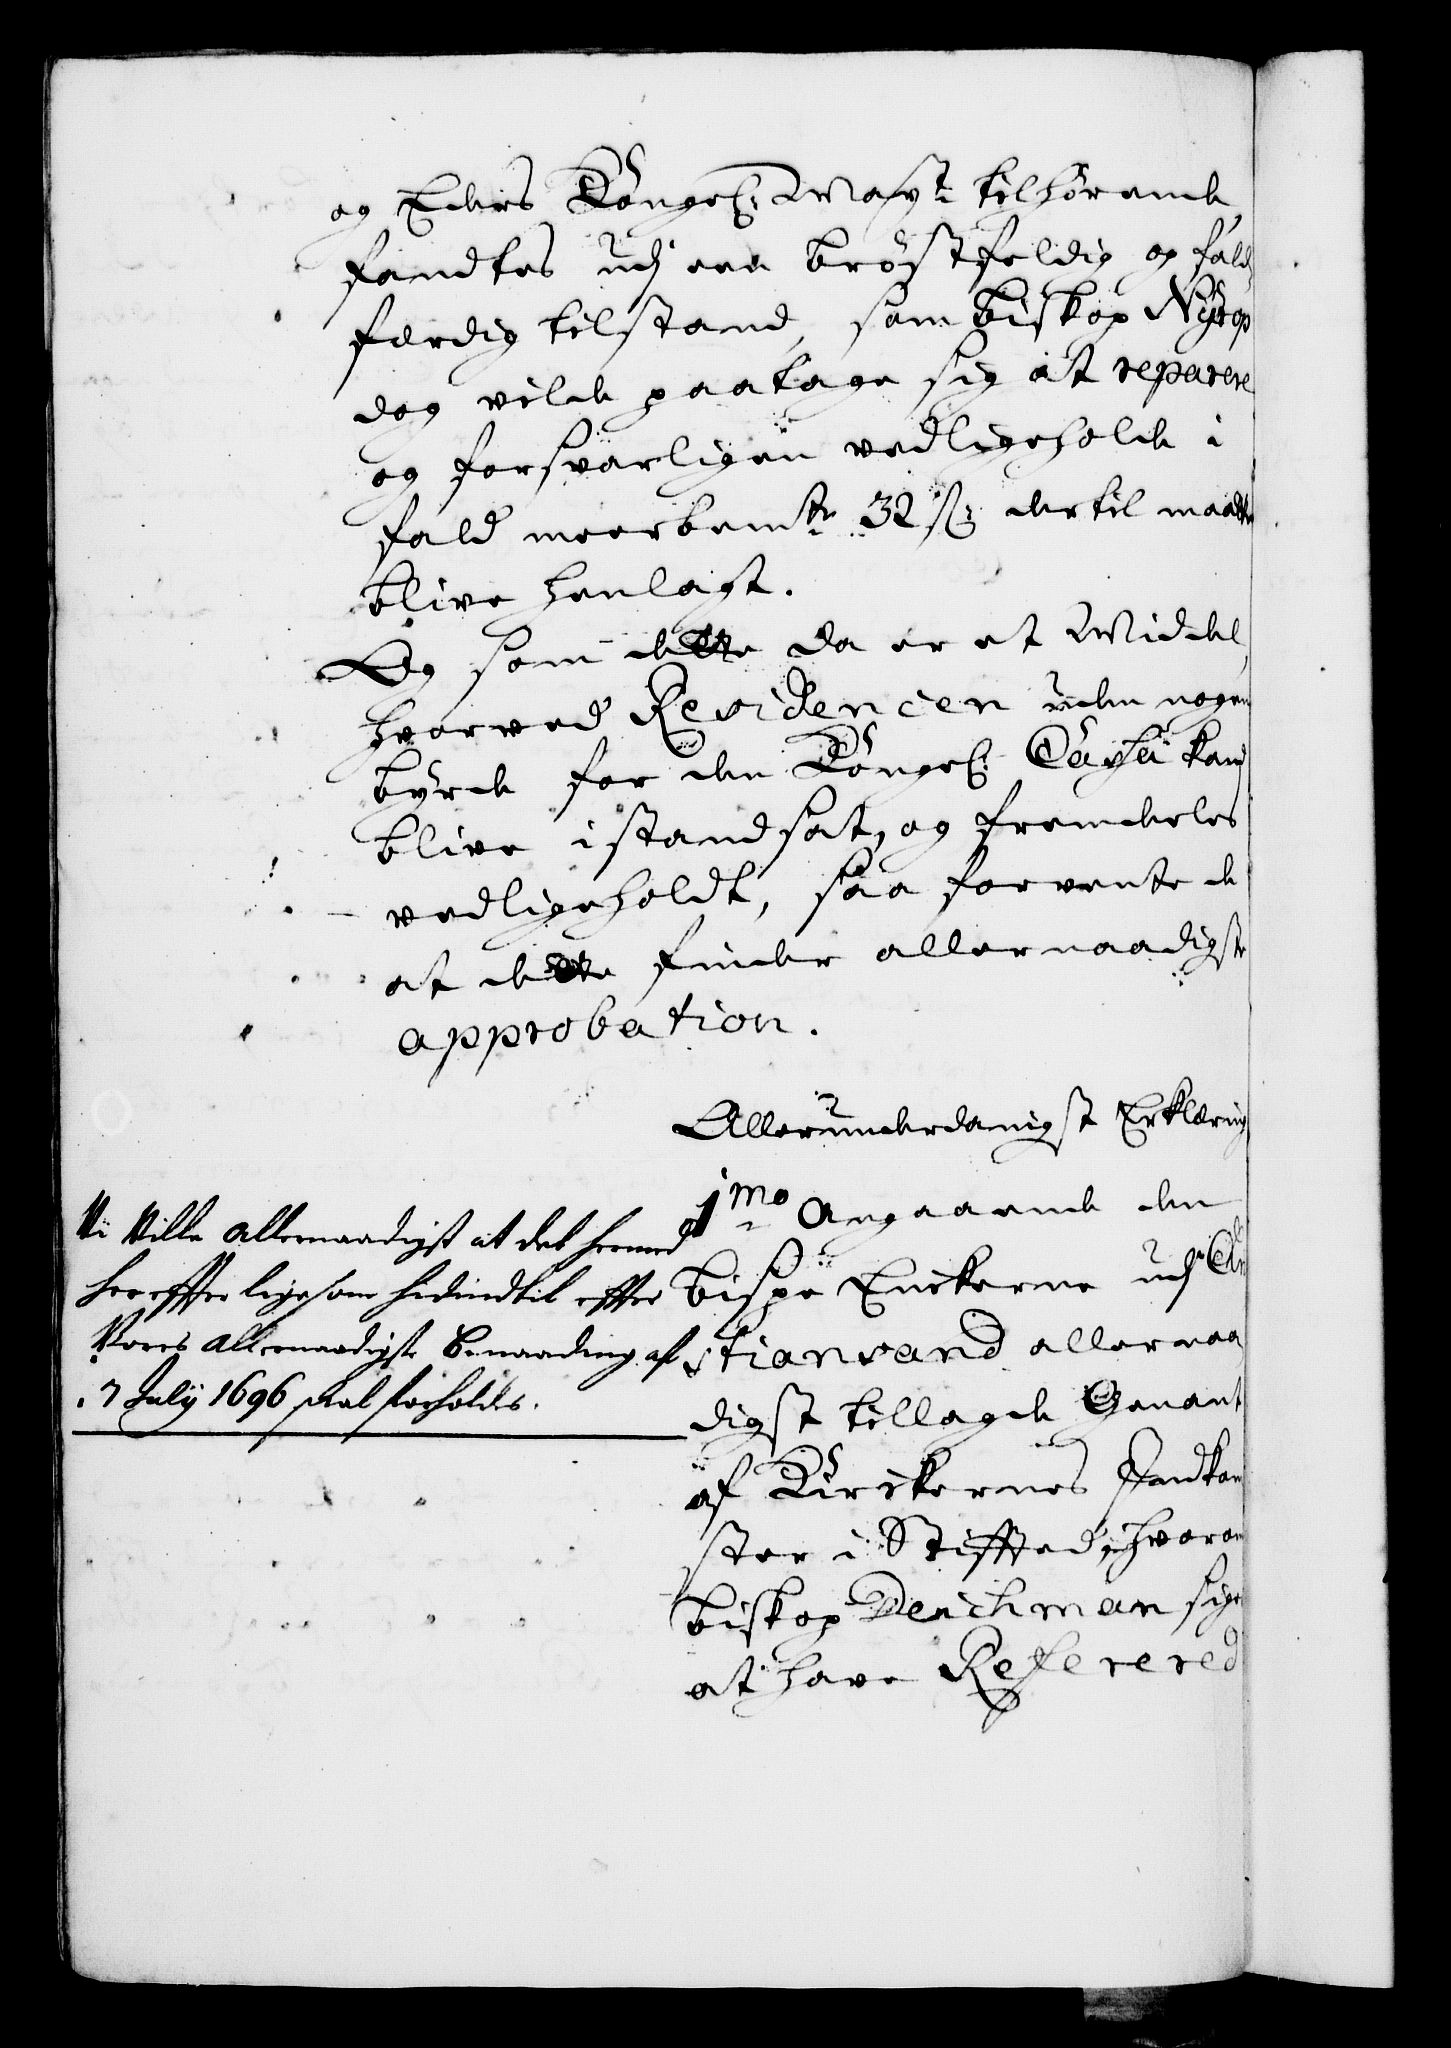 og Eders Kongel: May:t tilhørende
fandtes udj een brøstfeldig og fald
færdig tilstand, som Biskop Nyrop
dog vilde paatage sig at reparere
og forsvarligen vedligeholde i
fald meerbemte 32 s: dertil maatte
blive henlagt.
Og som dette da er et Middel,
hvorved Residencen uden nogen
byrde for den Kongel: Cassa kand
blive istandsat, og fremdeeles
vedligeholdt, saa forvente de
at dette finder allernaadigste
approbation.
Allerunderdanigst Erklæring
1mo Angaaende den
bispe Enckerne udj Chri
stiansand allernaa
digst tillagde Genant
af Kirckernes Indkom
ster i Stiffted, hvorom
biskop Deichman siger
at have Referered
Vi Ville allernaadigst at det hermed
herefter ligesom hidindtil effter
Vores allernaadigste Benaading af
7 July 1696 skal forholdes.